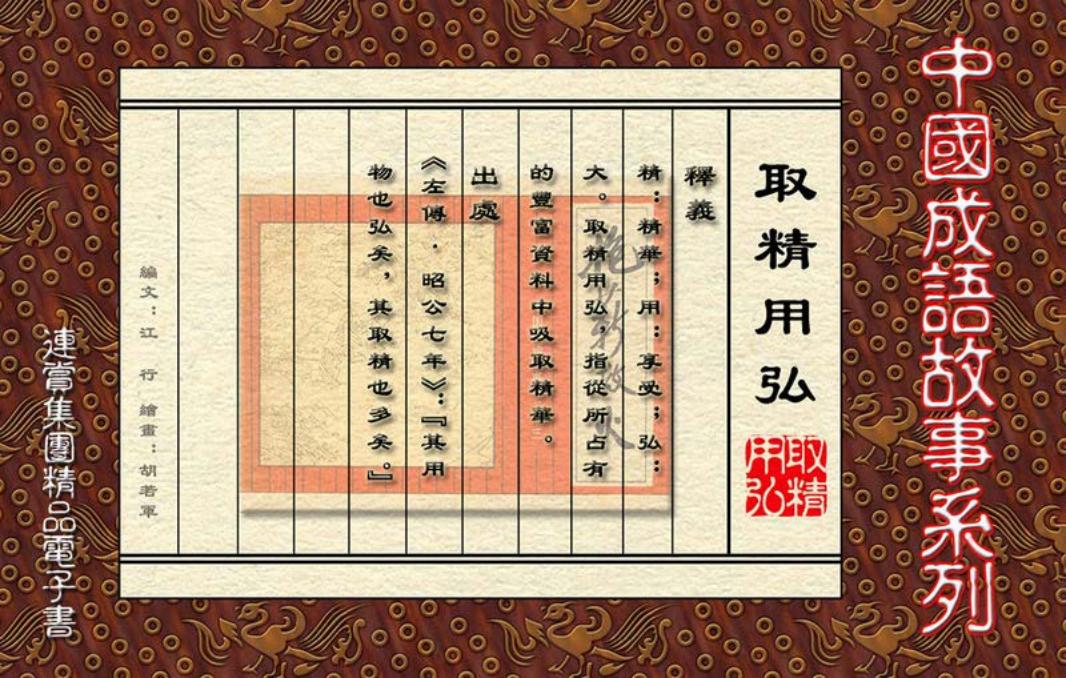 中國成語故事系列
取精用弘
取精
用弘
釋義
精：精華；用：享受；弘：
大。取精用弘，指從所占有
的豐富資料中吸取精華。
出處
《左傳．昭公七年》：『其用
物也弘矣，其取精也多矣。』
編文：江 行 繪畫：胡若軍
連賞集團精品電子書